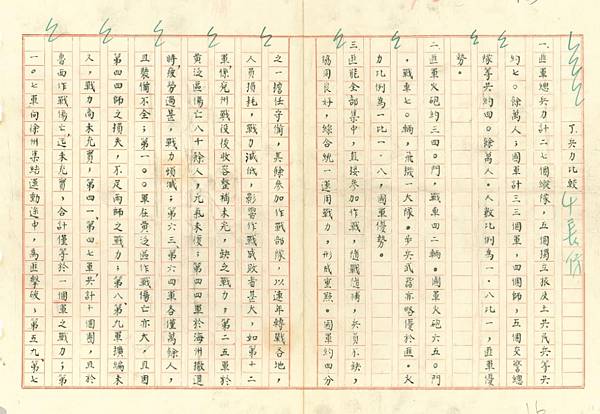 丁、兵力比較
一、匪軍總兵力計二七個縱隊，五個獨立旅及土共民兵等共
約七〇餘萬人；國軍計三三個軍，四個師，五個交警總
隊等共約四〇餘萬人。人數比例為一．八比一，匪軍優
勢。
二、匪軍火砲約三四〇門，戰車四二輛。國軍火砲六五〇門
，戰車七〇輛，飛機一大隊。步兵武器亦略優於匪。火
力比例為一比一．八，國軍優勢。
三、匪能全部集中，直接參加作戰，隨戰隨補，兵員不缺，
協同良好，綜合統一運用戰力，形成重點。國軍約四分
之一擔任守備，其餘參加作戰部隊，以連年轉戰各地，
人員損耗，戰力減低，影響作戰成敗者甚大，如第十二
軍係兗州戰役後收容整補未完，缺乏戰力；第二五軍於
黃泛區傷亡八千餘人，元氣未復；第四四軍於海州撤退
時疲勞過甚，戰力傾減；第六三、第六四軍各僅萬餘人，
且裝備不全；第一〇〇軍在黃泛區作戰傷亡亦大，且因
第四四師之損失，不足兩師之戰力；第八、第九軍擴編未
久，戰力尚未充實，第四一、第四七軍共計十個團，且於
魯西作戰傷亡，迄未充實，合計僅等於一個軍之戰力；第
一〇七軍向徐州集結運動途中，為匪擊破；第五九、第七